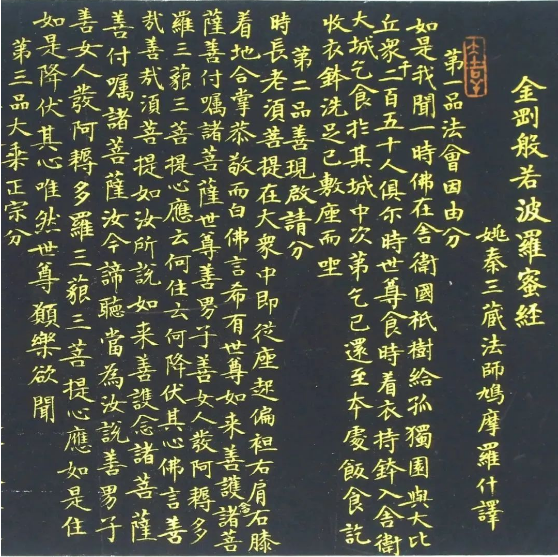 金剛般若波羅蜜經
姚秦三蔵法師鳩摩羅什譯
第一品法會因由分
如是我聞一時佛在舎衛國祇樹給孤獨園與大比
丘衆千二百五十人俱尓時世尊食時着衣持鉢入舎衛
大城乞食於其城中次第乞已還至本處飯食訖
收衣鉢洗足已敷座而坐
第二品善現啟請分
時長老湏菩提在大衆中即從座起偏袒右肩右膝
着地合掌恭敬而白佛言希有世尊如来善護念諸菩
薩善付嘱諸菩薩世尊善男子善女人發阿耨多
羅三藐三菩提心應云何住云何降伏其心佛言善
哉善哉湏菩提如汝所説如来善護念諸菩薩
善付嘱諸菩薩汝今諦聽當為汝説善男子
善女人發阿耨多羅三藐三菩提心應如是住
如是降伏其心唯然世尊願樂欲聞
第三品大乗正宗分